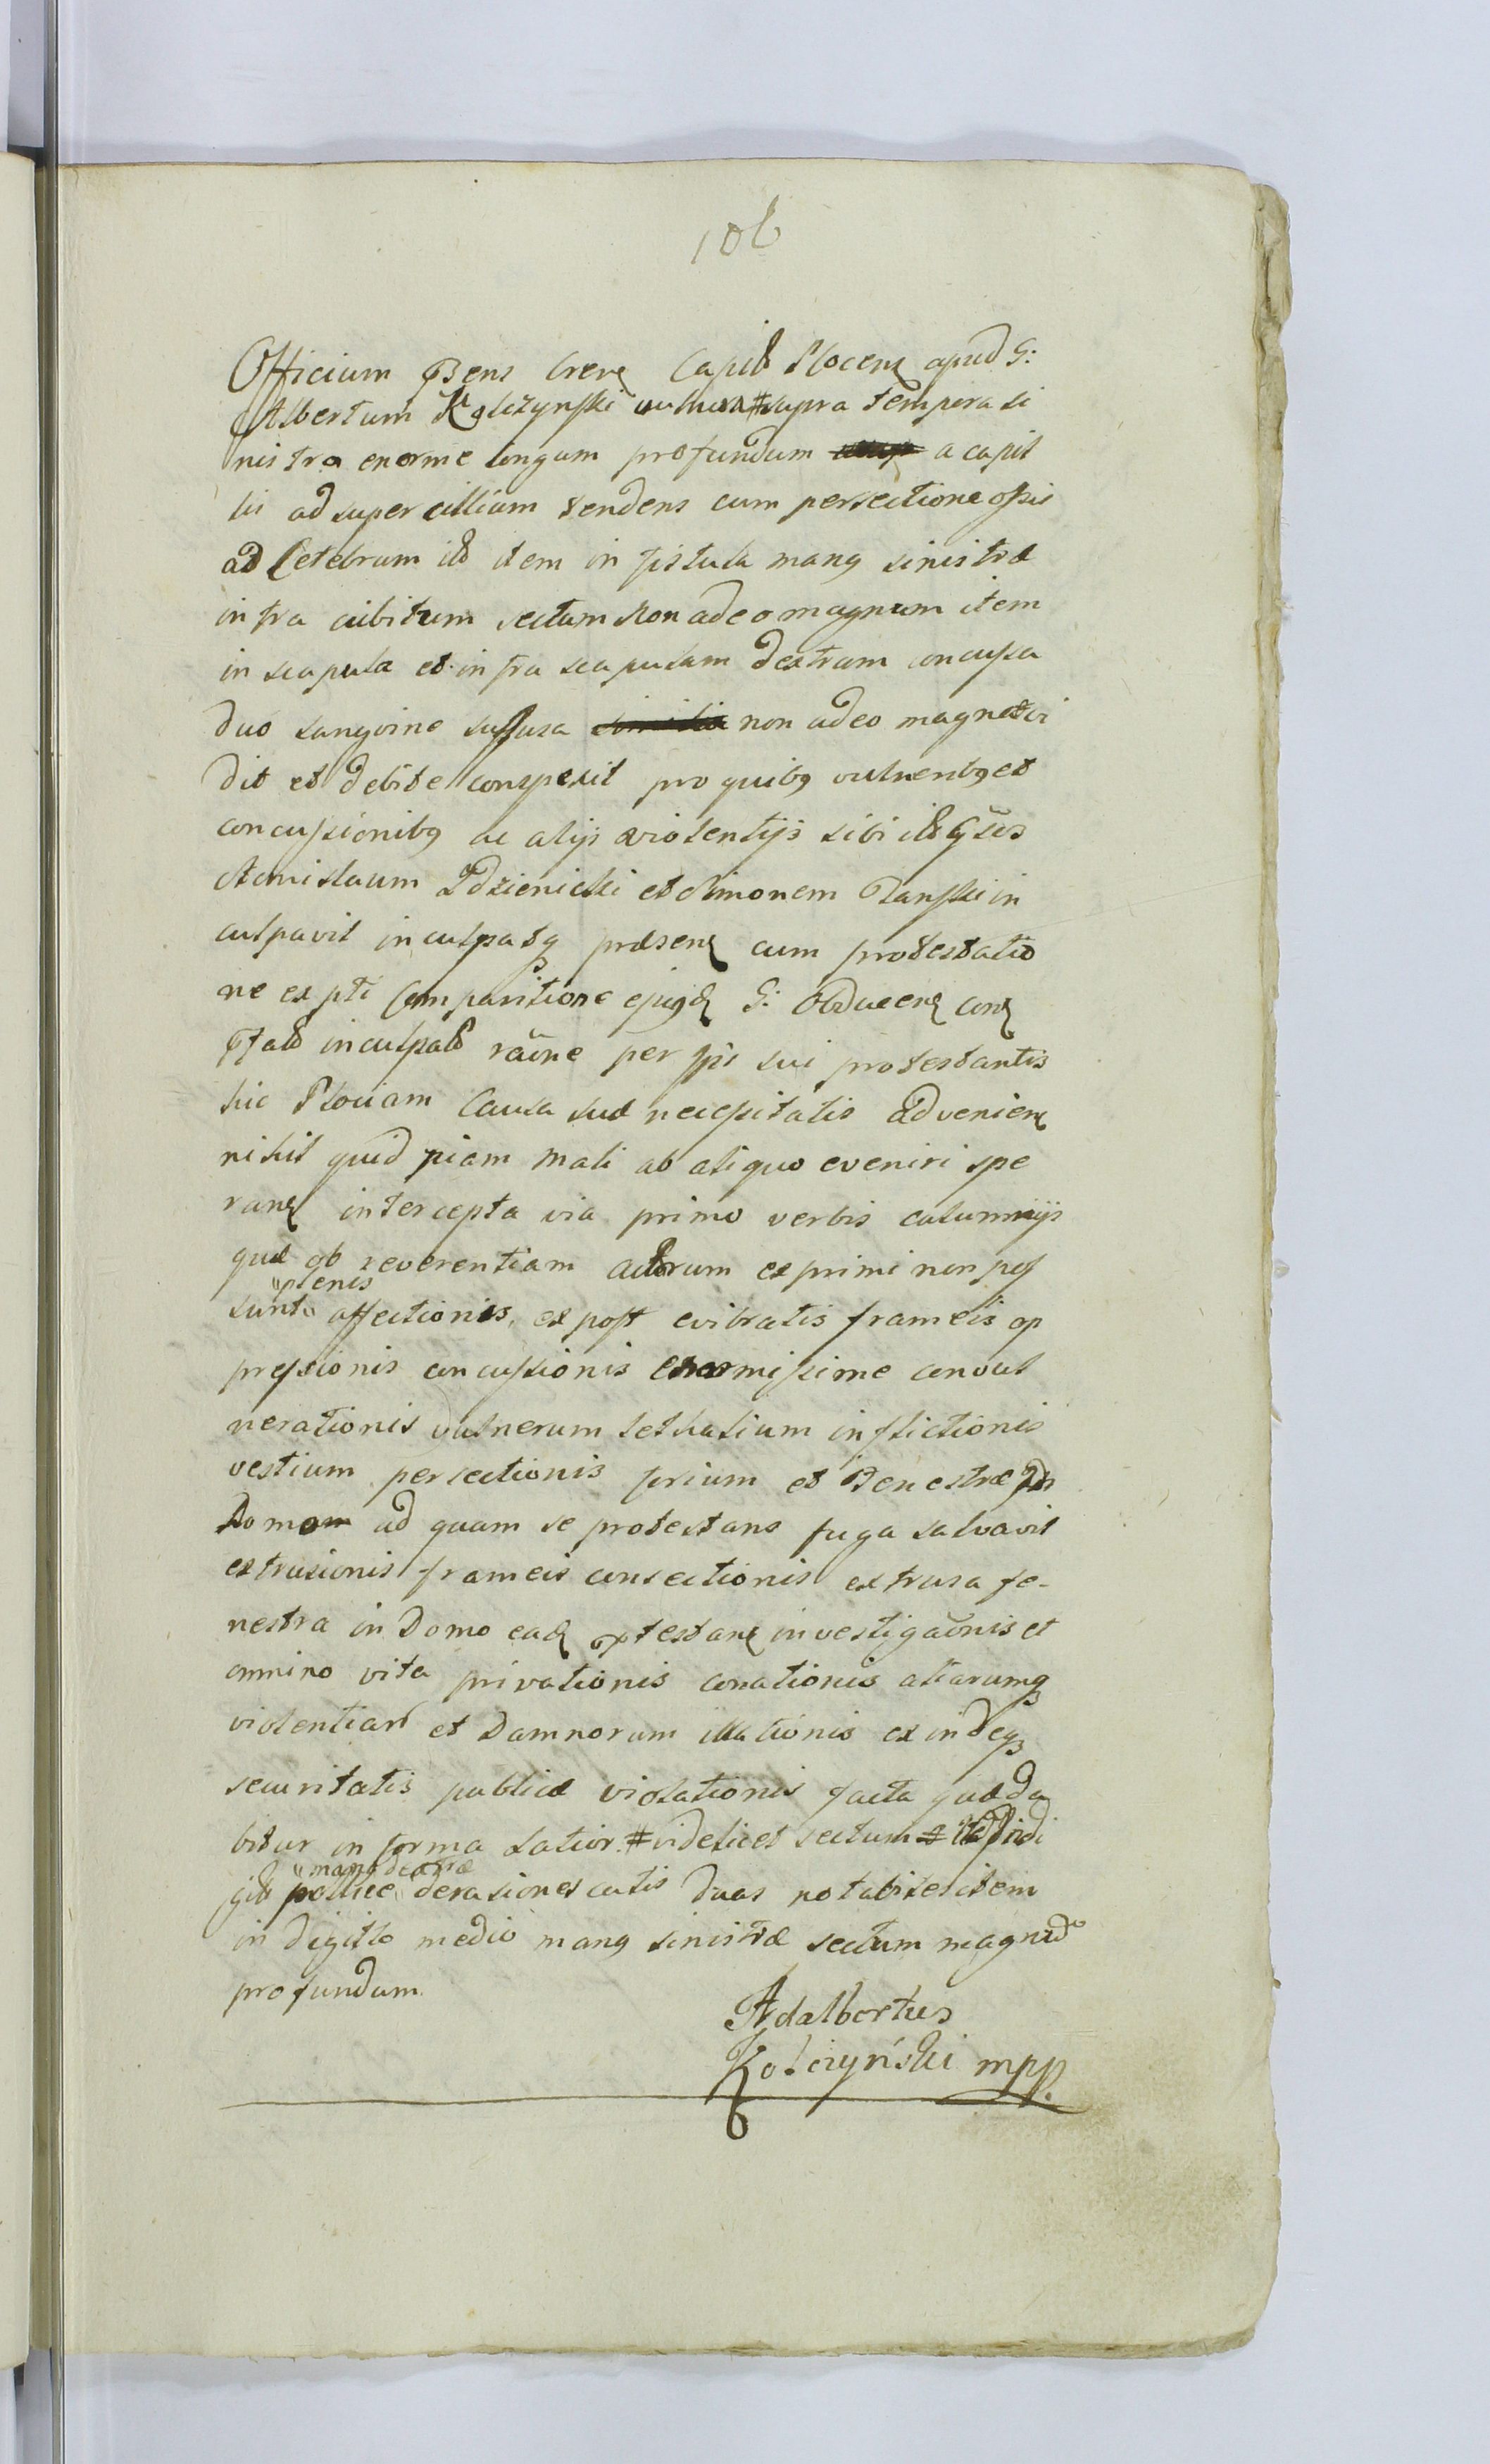 106
Officium Capit Plocen apud G:
Albertum Kolczynski vulnera # supra tempora si
nistra enorme longum profundum a capil
lis ad supercillium tendens cum persectione ossis
ad Cerebrum item in fistula manq sinistræ
infra cubitum sectum non adeo magnum item
in scapula et infra scapulam dextram concussa
duo sangvine suffusa non adeo magna vi
dit et debite conspexit pro quibq vulneribq et
concussionibq ac alijs violentijs sibi
Stanislaum Zdzienicki et Simonem in
culpavit inculpatq præsen cum protestatio
ne ex pti Comparitione ejusd G: Obducen con
inculpat raõne per sui protestantis
hic Plociam Causa suæ necessitatis advenien
nihil quidpiam mali ab aliquo eveniri spe
ran intercepta via primo verbis calumnijs
quæ ob reverentiam actorum exprimi non pos
sunt plenis affectionis, ex post evibratis frameis op
pressionis concussionis enormissime convul
nerationis vulnerum lethalium inflictionis
vestium persectionis forium et Fenestræ
ad quam se protestans fuga salvavit
extrusionis frameis consectionis extrusa fe-
nestra in Domo ead ptestan investigaõnis et
omnino vita privationis conationis aliarumq
violentiar et Damnorum illationis ex indeq
securitatis publicæ violationis facta quæ da
bitur in forma latior. # videlicet sectum
pollice manq dextræ derasiones cutis duas notabiles item
in digitto medio manq sinistræ sectum magnũ
profundum.
Adalbertus
Kolczyński mpp.